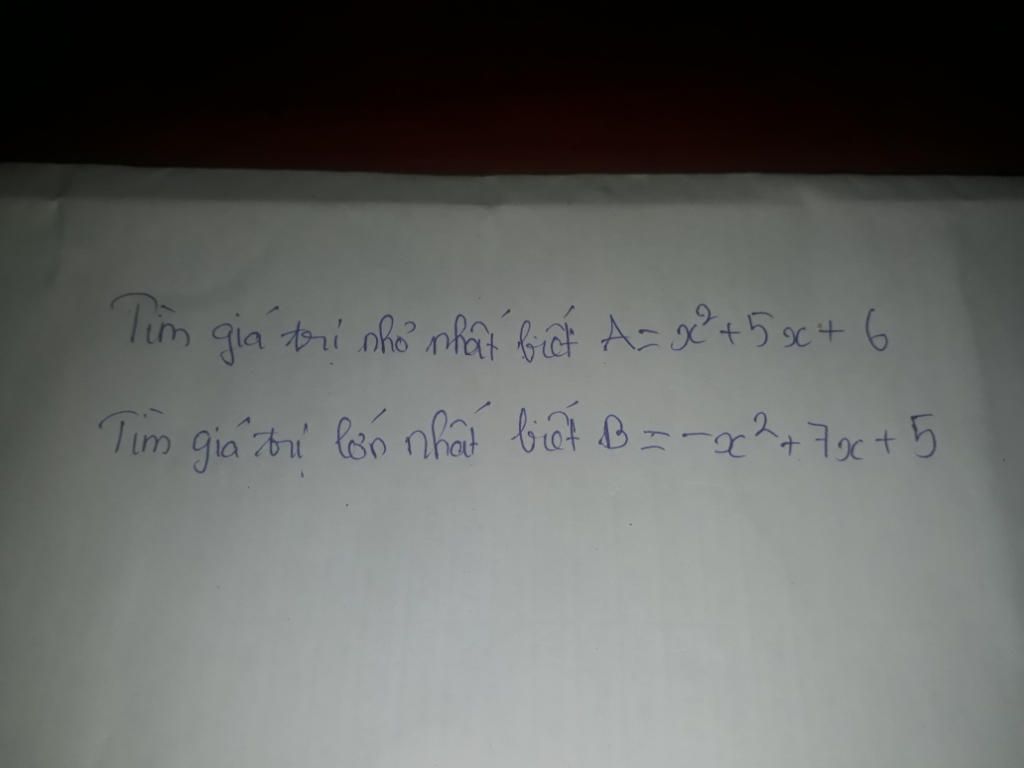 Tìm giá trị nhỏ nhất biết A = x² + 5x + 6
Tìm giá trị lớn nhất biết B = -x² + 7x + 5